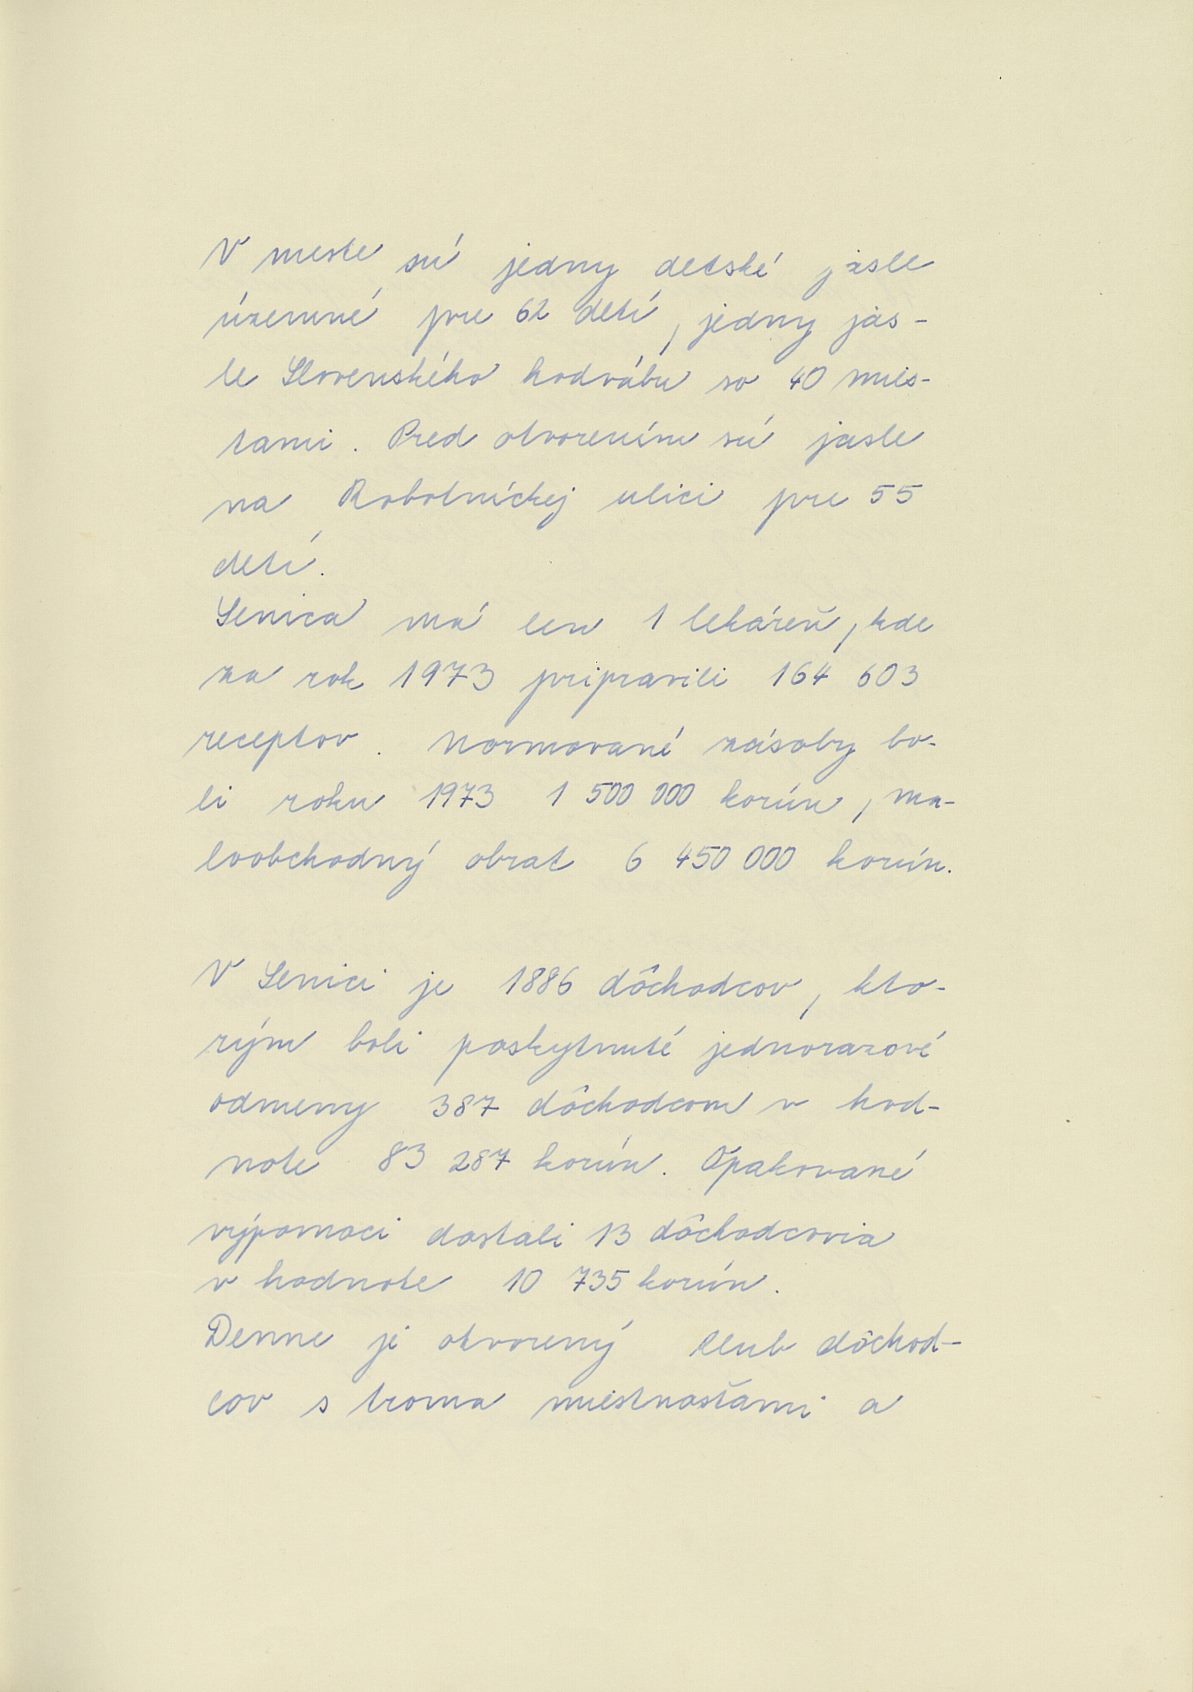 V meste sú jedny detské jasle
územné pre 62 detí, jedny jas-
le Slovenského hodvábu so 40 mies-
tami. Pred otvorením sú jasle
na Robotníckej ulici pre 55
detí.
Senica má len 1 lekáreň, kde
za rok 1973 pripravili 164 603
receptov. Normované zásoby bo-
li roku 1973 1 500 000 korún, ma-
loobchodný obrat 6 450 000 korún.
V Senici je 1886 dôchodcov, kto-
rým boli poskytnuté jednorazové
odmeny 387 dôchodcom v hod-
note 83 287 korún. Opakované
výpomoci dostali 13 dôchodcovia
v hodnote 10 735 korún.
Denne je otvorený klub dôchod-
cov s troma miestnosťami a